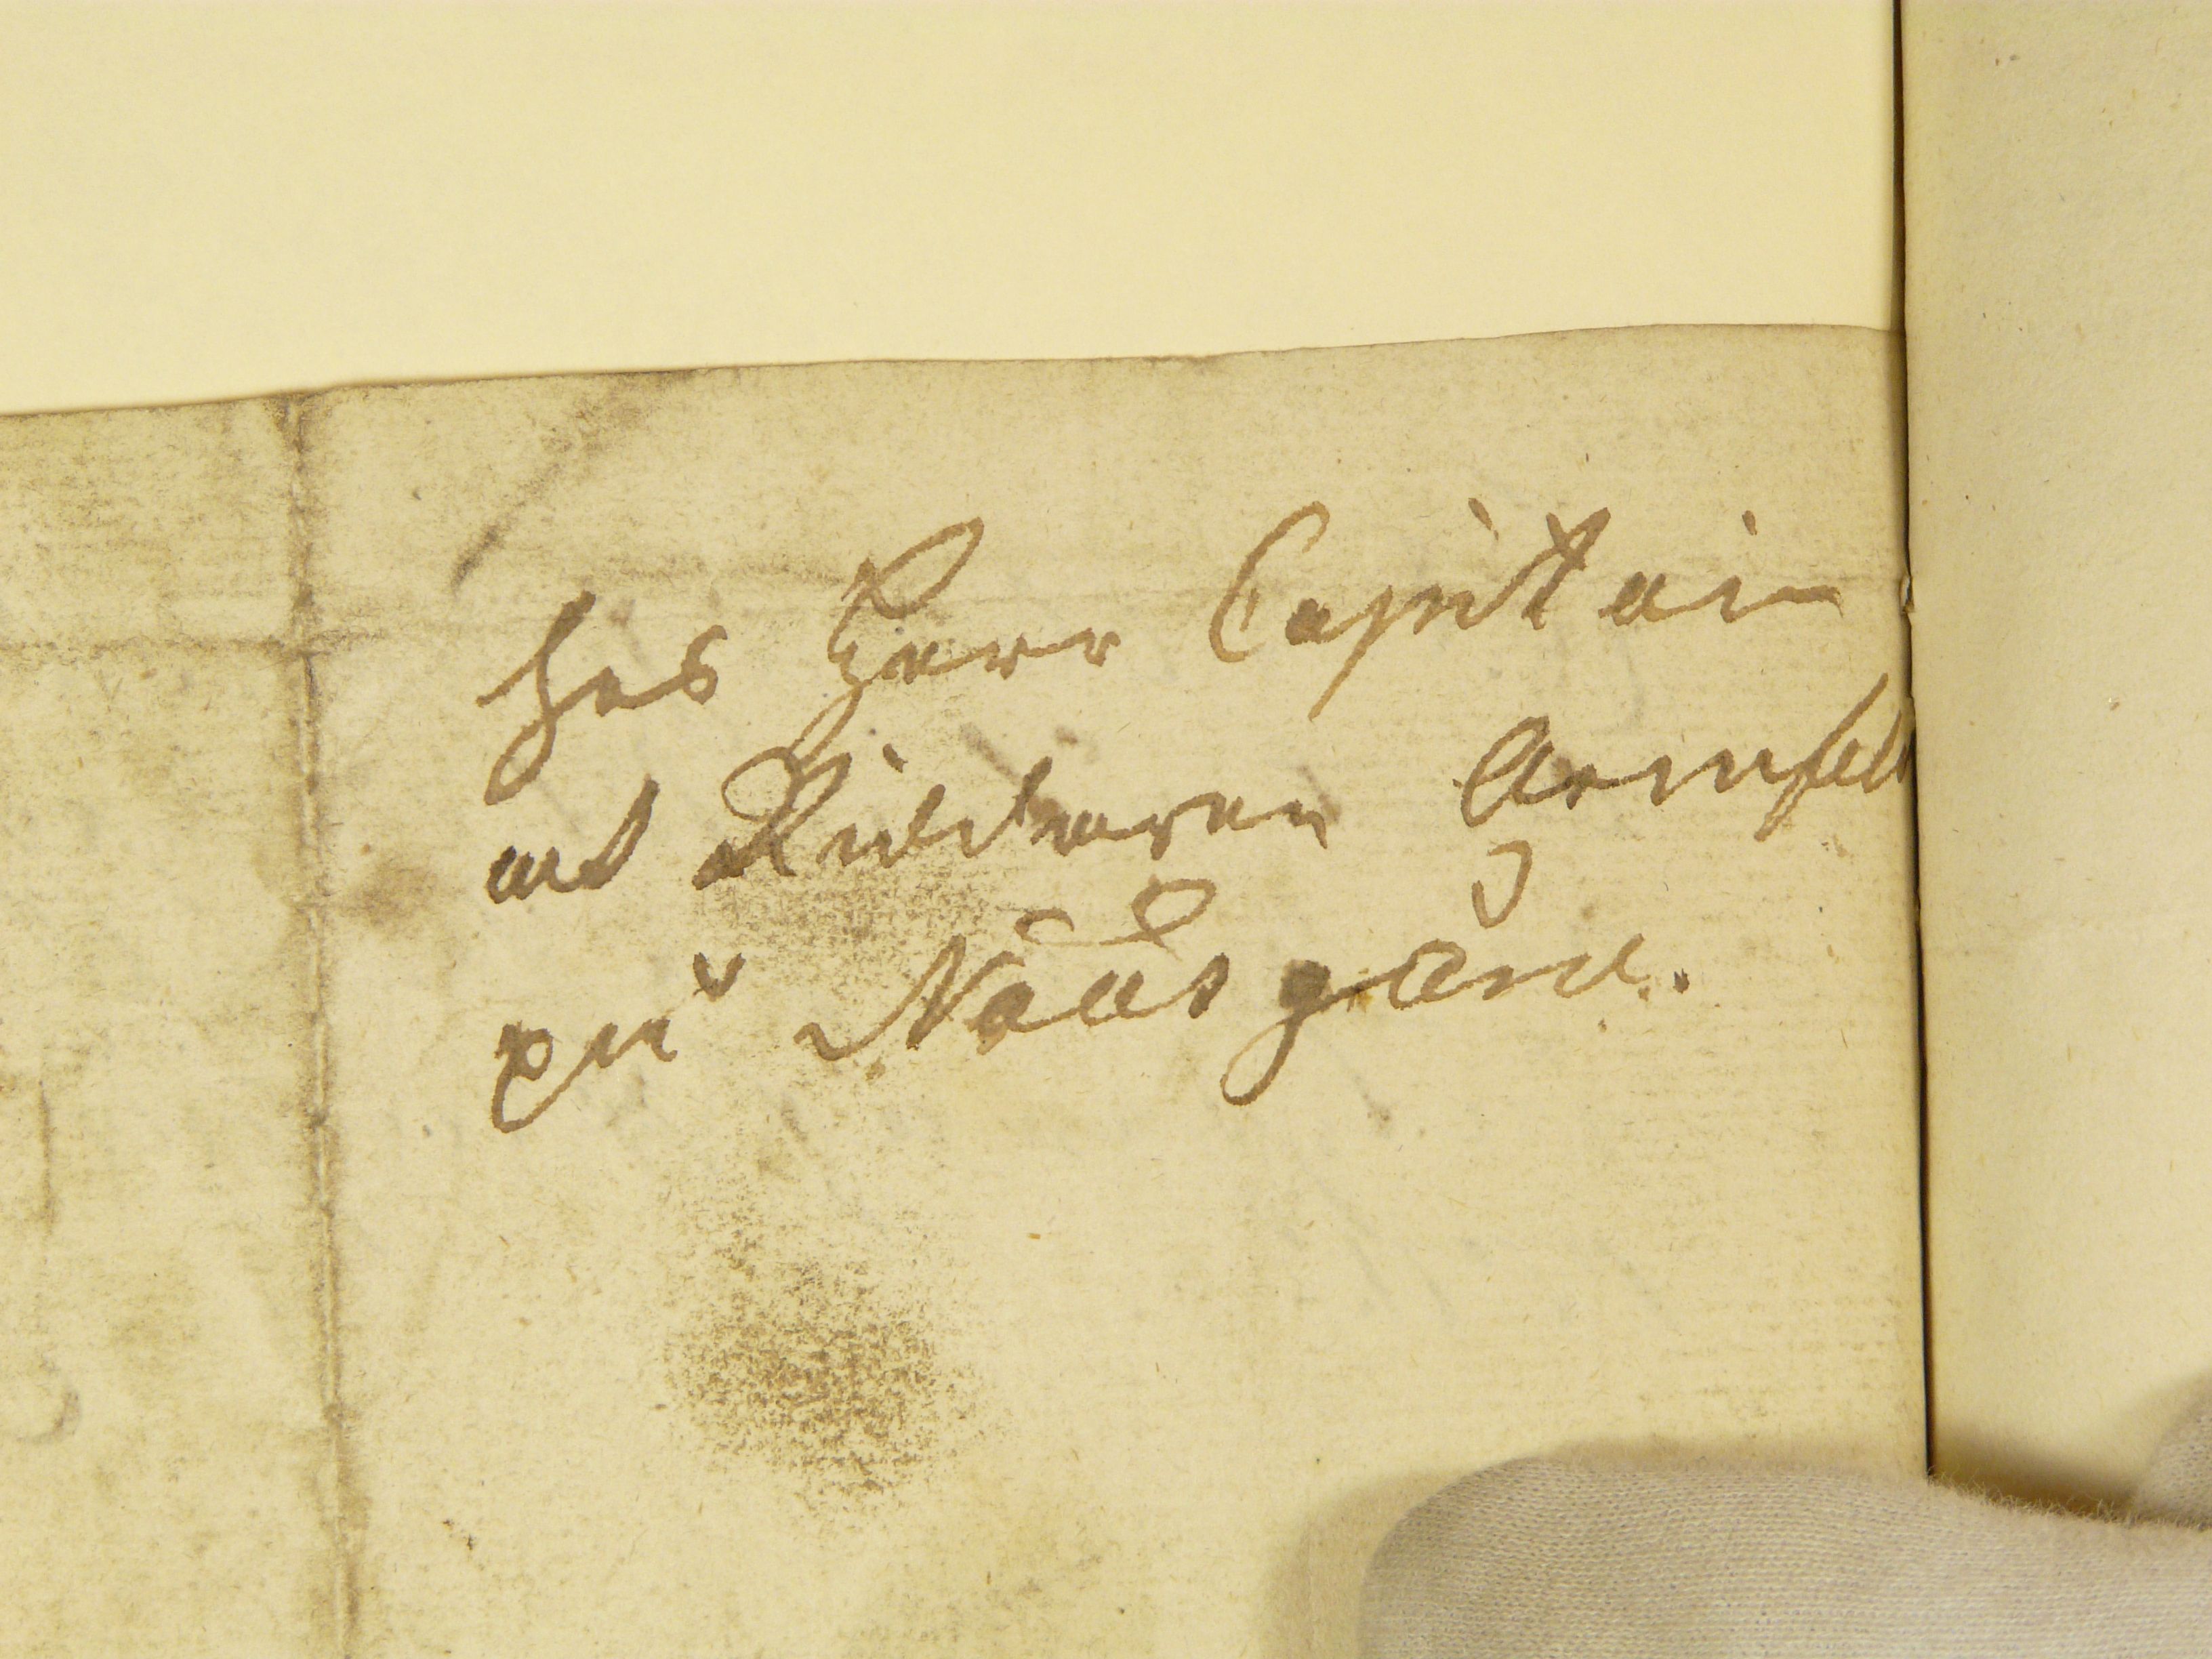 hos Herr Capitain
och Riddaren Armfelt
på Nääs gård.